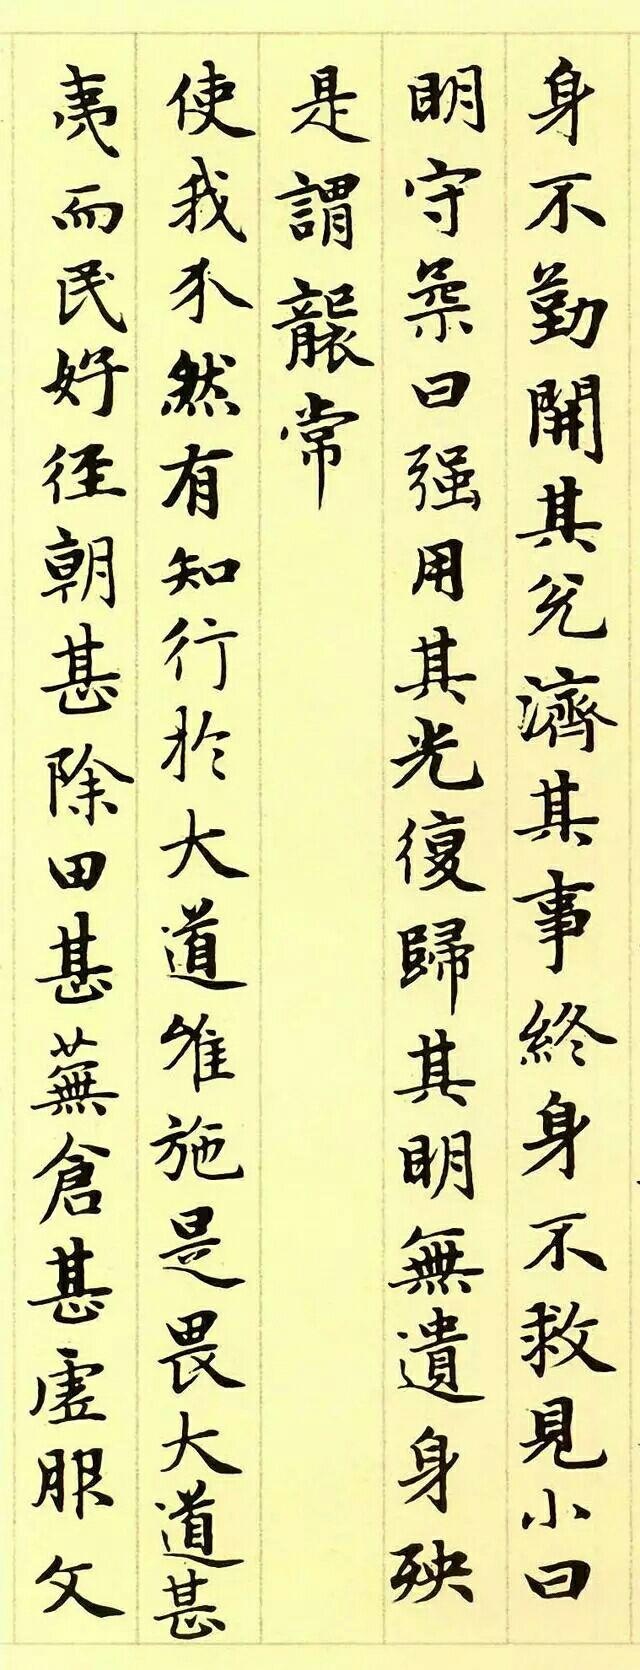 身不勤開其兑濟其事終身不救見小曰
明守柔曰强用其光復歸其明無遺身殃
是謂襲常
使我介然有知行於大道唯施是畏大道甚
夷而民好徑朝甚除田甚蕪倉甚虛服文